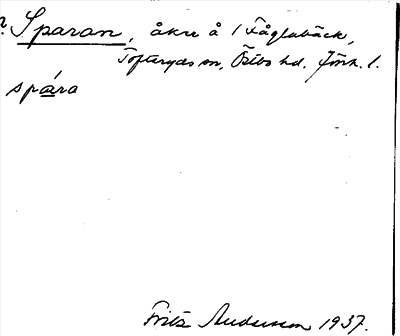 Sparan, åkrar å 1 Fåglabäck,
Tofteryds sn, Östbo hd. Jönk. l.
spára
Fritz Anderson 1937.